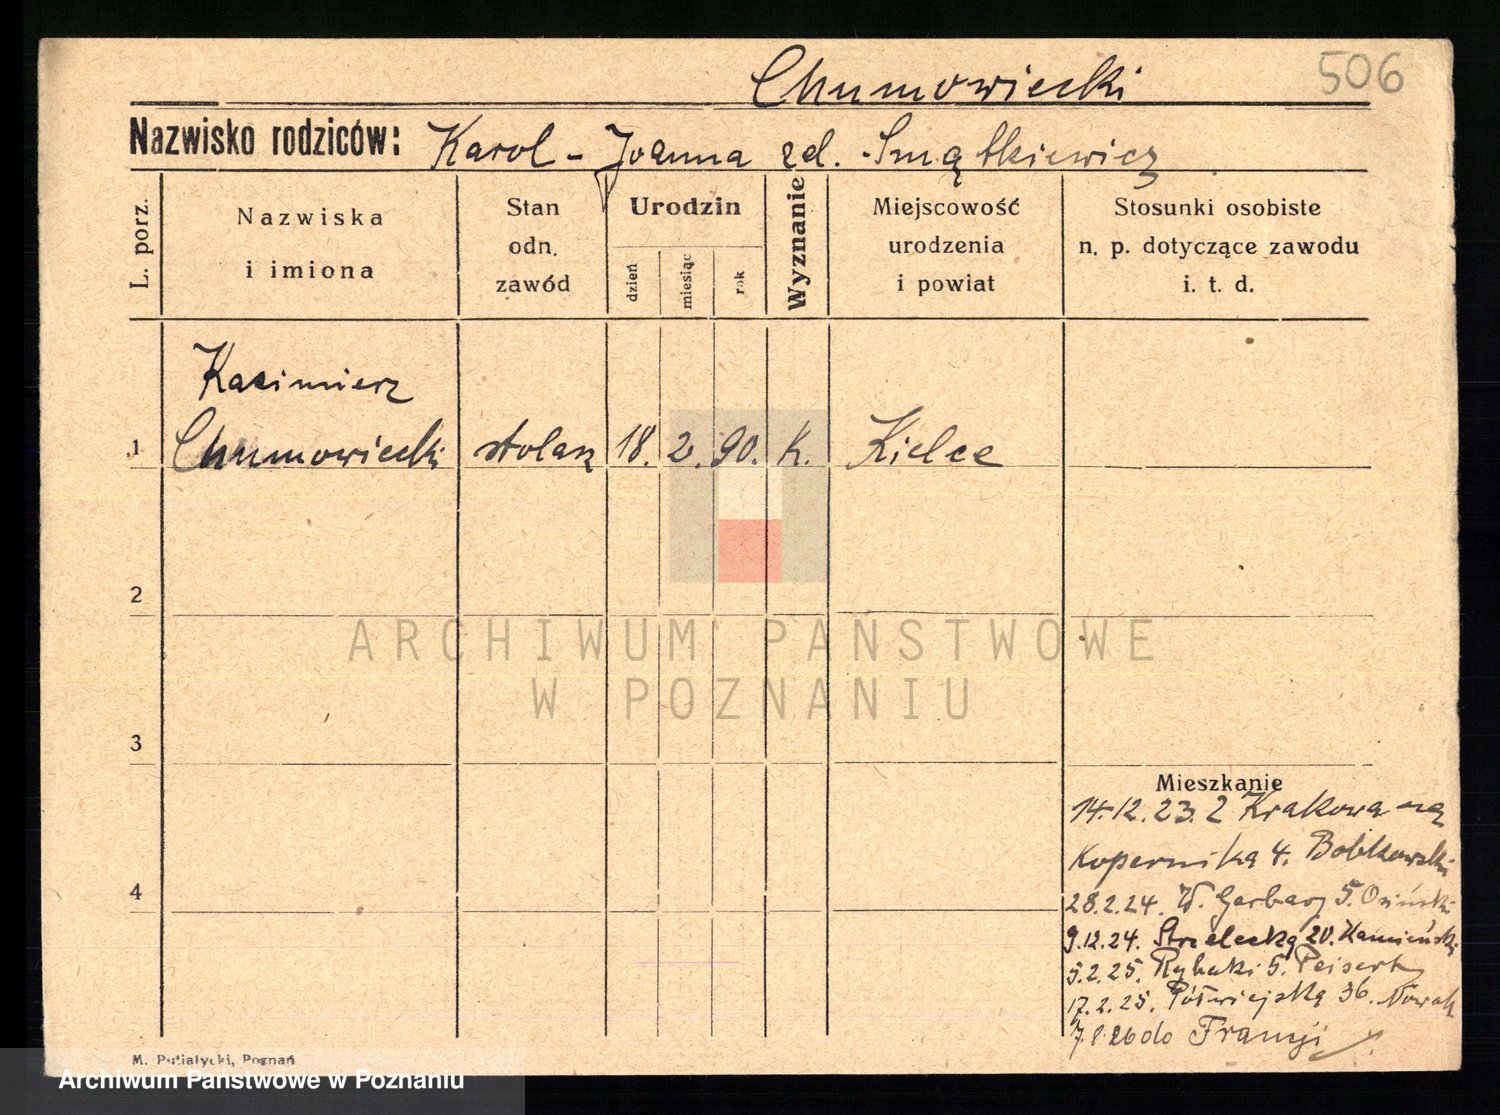 Chumowiecki
506
Nazwisko rodziców: Karol - Joanna zd. Smętkiewicz
L. porz.
Nazwiska
i imiona
Stan
odn.
zawód
Urodzin
dzień
miesiąc
rok
Wyznanie
Miejscowość
urodzenia
i powiat
Stosunki osobiste
n. p. dotyczące zawodu
i. t. d.
Kazimierz
1 Chumowiecki stolarz 18. 2. 90. K. Kielce
2
ARCHIWUM PAŃSTWOWE
W POZNANIU
3
4
Mieszkanie
14.12.23. Z Krakowa na
Kopernika 4. Bobkowski
28.2.24. W. Garbary 5. Osiński
9.12.24. Strzelecka 20. Kamieński
5.2.25. Rybaki 5. Peisert
17.2.25. Półwiejska 36. Nowak
7.8.26 do Francji
M. Putiatycki, Poznań
Archiwum Państwowe w Poznaniu